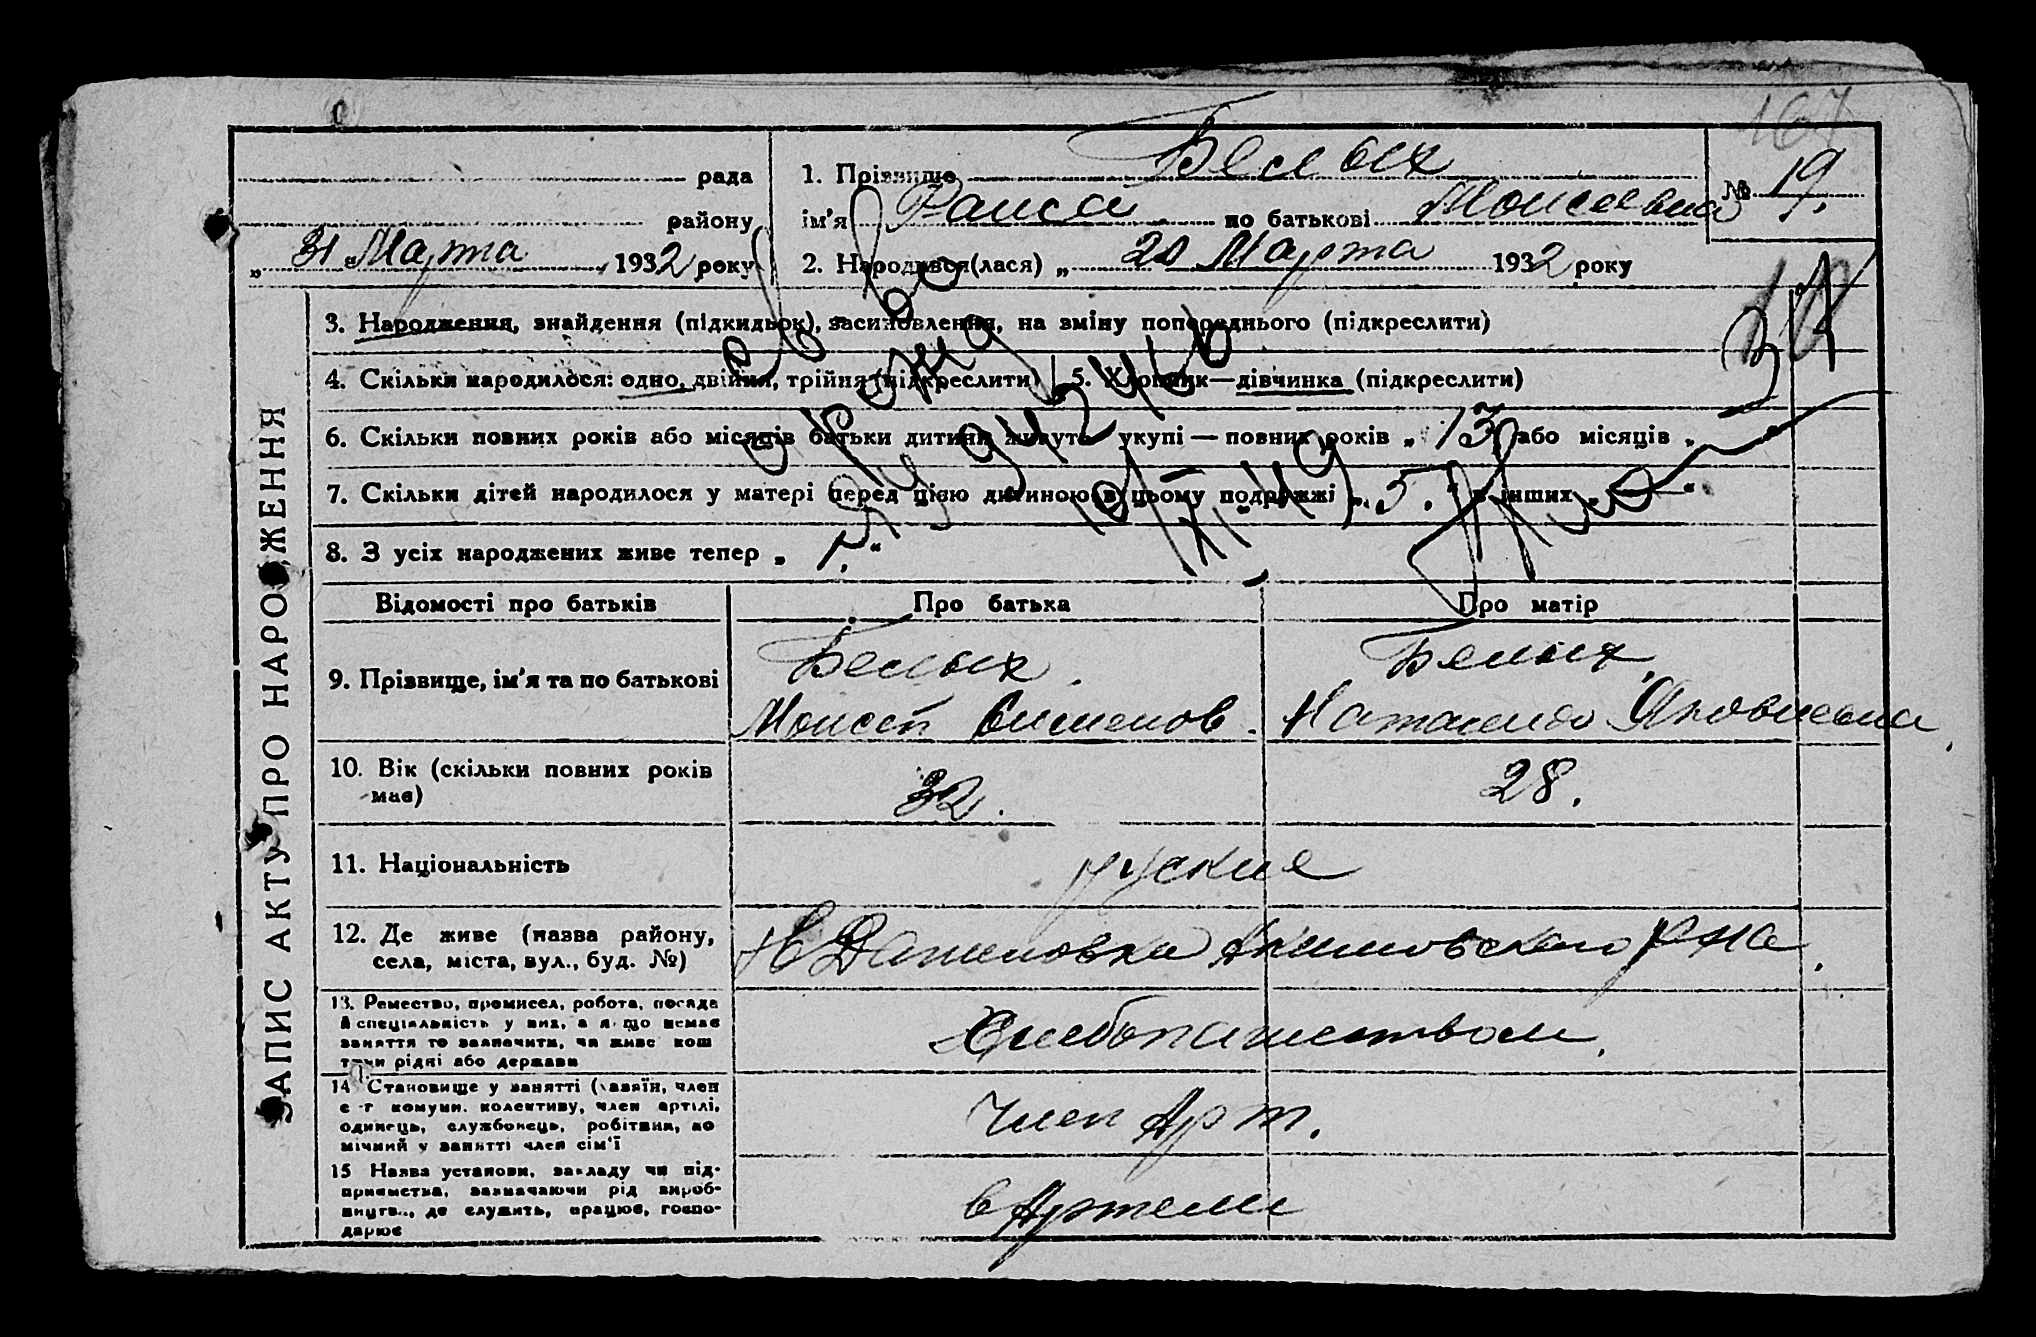 167
рада
району
„ 31 " Марта 1932 року
1. Прізвище Белых
ім'я Раиса по батькові Моисеевна
№ 19.
2. Народився(лася) „ 20 Марта 1932 року
3. Народження, знайдення (підкидьок), засиновлення, на зміну попереднього (підкреслити)
4. Скільки народилося: одно, двійня, трійня (підкреслити) 5. Хлопчик—дівчинка (підкреслити)
6. Скільки повних років або місяців батьки дитини живуть укупі — повних років „ 13 або місяців „
7. Скільки дітей народилося у матері перед цією дитиною в цьому подружжі „ 5. " в інших „ — "
8. З усіх народжених живе тепер „ "
ЗАПИС АКТУ ПРО НАРОДЖЕННЯ
Відомості про батьків Про батька Про матір
9. Прізвище, ім'я та по батькові
Белых
Моисей Симонов.
Белых,
Наталия Яковлевна
10. Вік (скільки повних років має)
32.
28.
11. Національність
руские
12. Де живе (назва району,
села, міста, вул., буд. №)
Н Даниловка Акимовского р-на.
13. Ремество, промисел, робота, посада
й спеціяльність у них, а якщо немає
заняття то зазначити, чи живе кош
тами рідні або держави
Хлебопашеством.
14 Становище у занятті (хазяїн, член
с-г комуни, колективу, член артілі,
одинець, службовець, робітник, по
мічний у занятті член сім'ї
Член Арт.
15 Назва установи, закладу чи під-
приємства, зазначаючи рід вироб-
ництв., де служить, працює, госпо-
дарює
в Артели